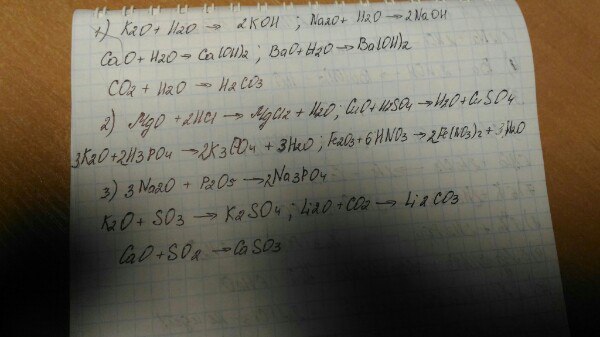 1) K2O + H2O → 2KOH ; Na2O + H2O → 2NaOH
CaO + H2O → Ca(OH)2 ; BaO + H2O → Ba(OH)2
CO2 + H2O → H2CO3
2) MgO + 2HCl → MgCl2 + H2O ; CuO + H2SO4 → H2O + CuSO4
3K2O + 2H3PO4 → 2K3PO4 + 3H2O ; Fe2O3 + 6HNO3 → 2Fe(NO3)2 + 3H2O
3) 3Na2O + P2O5 → 2Na3PO4
K2O + SO3 → K2SO4 ; Li2O + CO2 → Li2CO3
CaO + SO2 → CaSO3